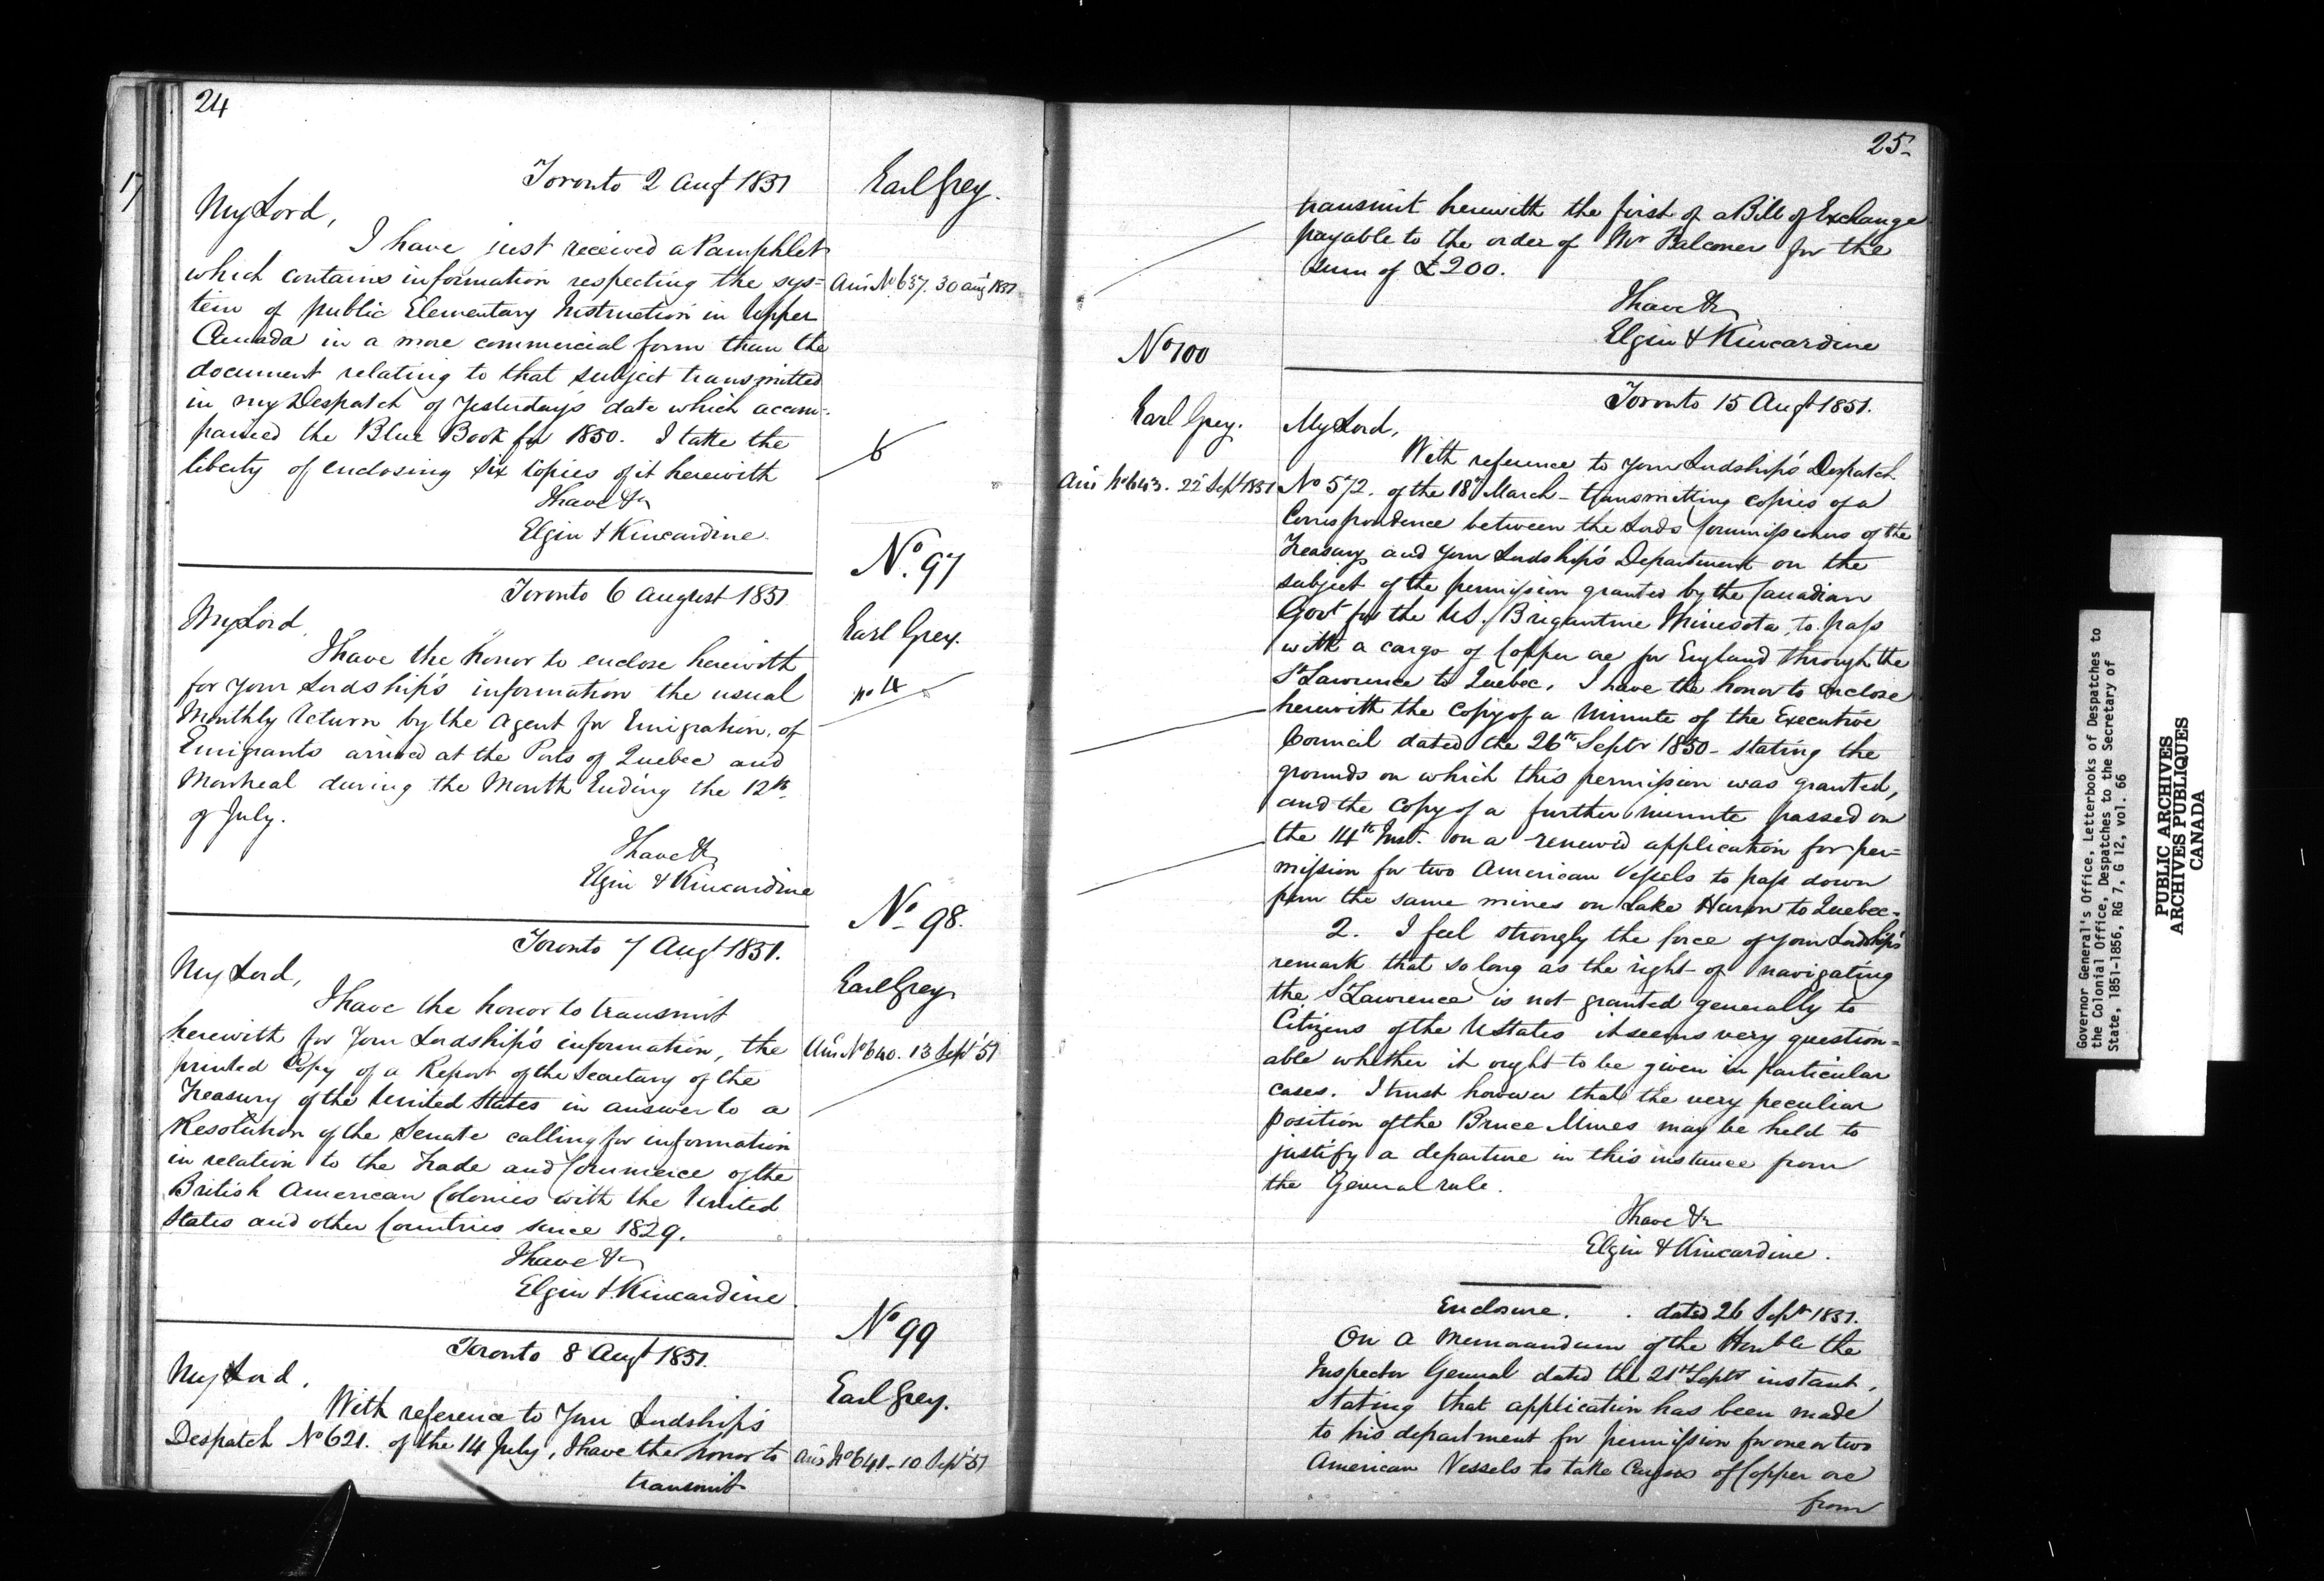 24
Toronto 2 Augt 1851
Earl Grey.
My Lord,
I have just received a Pamphlet
which contains information respecting the sys=
Ans No 637. 30 Aug 1851
tem of public Elementary Instruction in Upper
Canada in a more commercial form than the
document relating to that subject transmitted
in my Despatch of Yesterday's date which accom-
panied the Blue Book for 1850. I take the
liberty of enclosing six copies of it herewith
6
I have &c
Elgin & Kincardine.
No. 97
Toronto 6 August 1851
Earl Grey.
My Lord,
I have the honor to enclose herewith
for your Lordship's information the usual
Monthly return by the Agent for Emigration, of
Emigrants arrived at the Ports of Quebec and
Montreal during the Month Ending the 12th
of July.
I have &c
Elgin & Kincardine
No 98.
Toronto 7 Augt 1851.
Earl Grey
My Lord,
I have the honor to transmit
herewith for Your Lordship's information, the
Ans No 640. 13 Sept '51
printed Copy of a Report of the Secretary of the
Treasury of the United States in answer to a
Resolution of the Senate calling for information
in relation to the Trade and Commerce of the
British American Colonies with the United
States and other Countries since 1829.
I have &c
Elgin & Kincardine
No 99
Toronto 8 Augt 1851.
Earl Grey.
My Lord,
With reference to Your Lordship's
Despatch No 621. of the 14 July, I have the honor to
Ans No 641 - 10 Sept '51
transmit
25
transmit herewith the first of a Bill of Exchange
payable to the order of Mr Falconer for the
sum of £200.
I have &c
Elgin & Kincardine
No 100
Toronto 15 Augt 1851.
Earl Grey.
My Lord,
With reference to your Lordship's Despatch
Ans No 643. 22 Sept 1851
No 572. of the 18th March - transmitting copies of a
Correspondence between the Lords Commissioners of the
Treasury and your Lordship's Department on the
subject of the permission granted by the Canadian
Govt for the US. Brigantine Minesota, to pass
with a cargo of Copper ore for England through the
St Lawrence to Quebec, I have the honor to enclose
herewith the Copy of a Minute of the Executive
Council dated the 26th Septr 1850 - stating the
grounds on which this permission was granted,
and the copy of a further minute passed on
the 14th Inst. on a renewed application for per=
mission for two American Vessels to pass down
from the same mines on Lake Huron to Quebec-
2. I feel strongly the force of your Lordship's
remark that so long as the right of navigating
the St Lawrence is not granted generally to
Citizens of the U States it seems very question=
able whether it ought to be given in particular
cases. I trust however that the very peculiar
position of the Bruce Mines may be held to
justify a departure in this instance from
the General rule.
I have &c
Elgin & Kincardine.
Enclosure. . dated 26 Septr 1851.
On a Memorandum of the Honble the
Inspector General dated the 21st Septr instant,
stating that application has been made
to his department for permission for one or two
American Vessels to take Cargoes of Copper ore
from
Governor General's Office, Letterbooks of Despatches to
the Colonial Office, Despatches to the Secretary of
State, 1851-1856, RG 7, G 12, vol. 66
PUBLIC ARCHIVES
ARCHIVES PUBLIQUES
CANADA